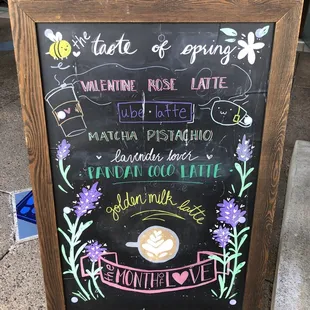 the taste of spring
VALENTINE ROSE LATTE
ube latte
MATCHA PISTACHIO
lavender lover
PANDAN COCO LATTE
golden milk latte
the MONTH OF L♥VE